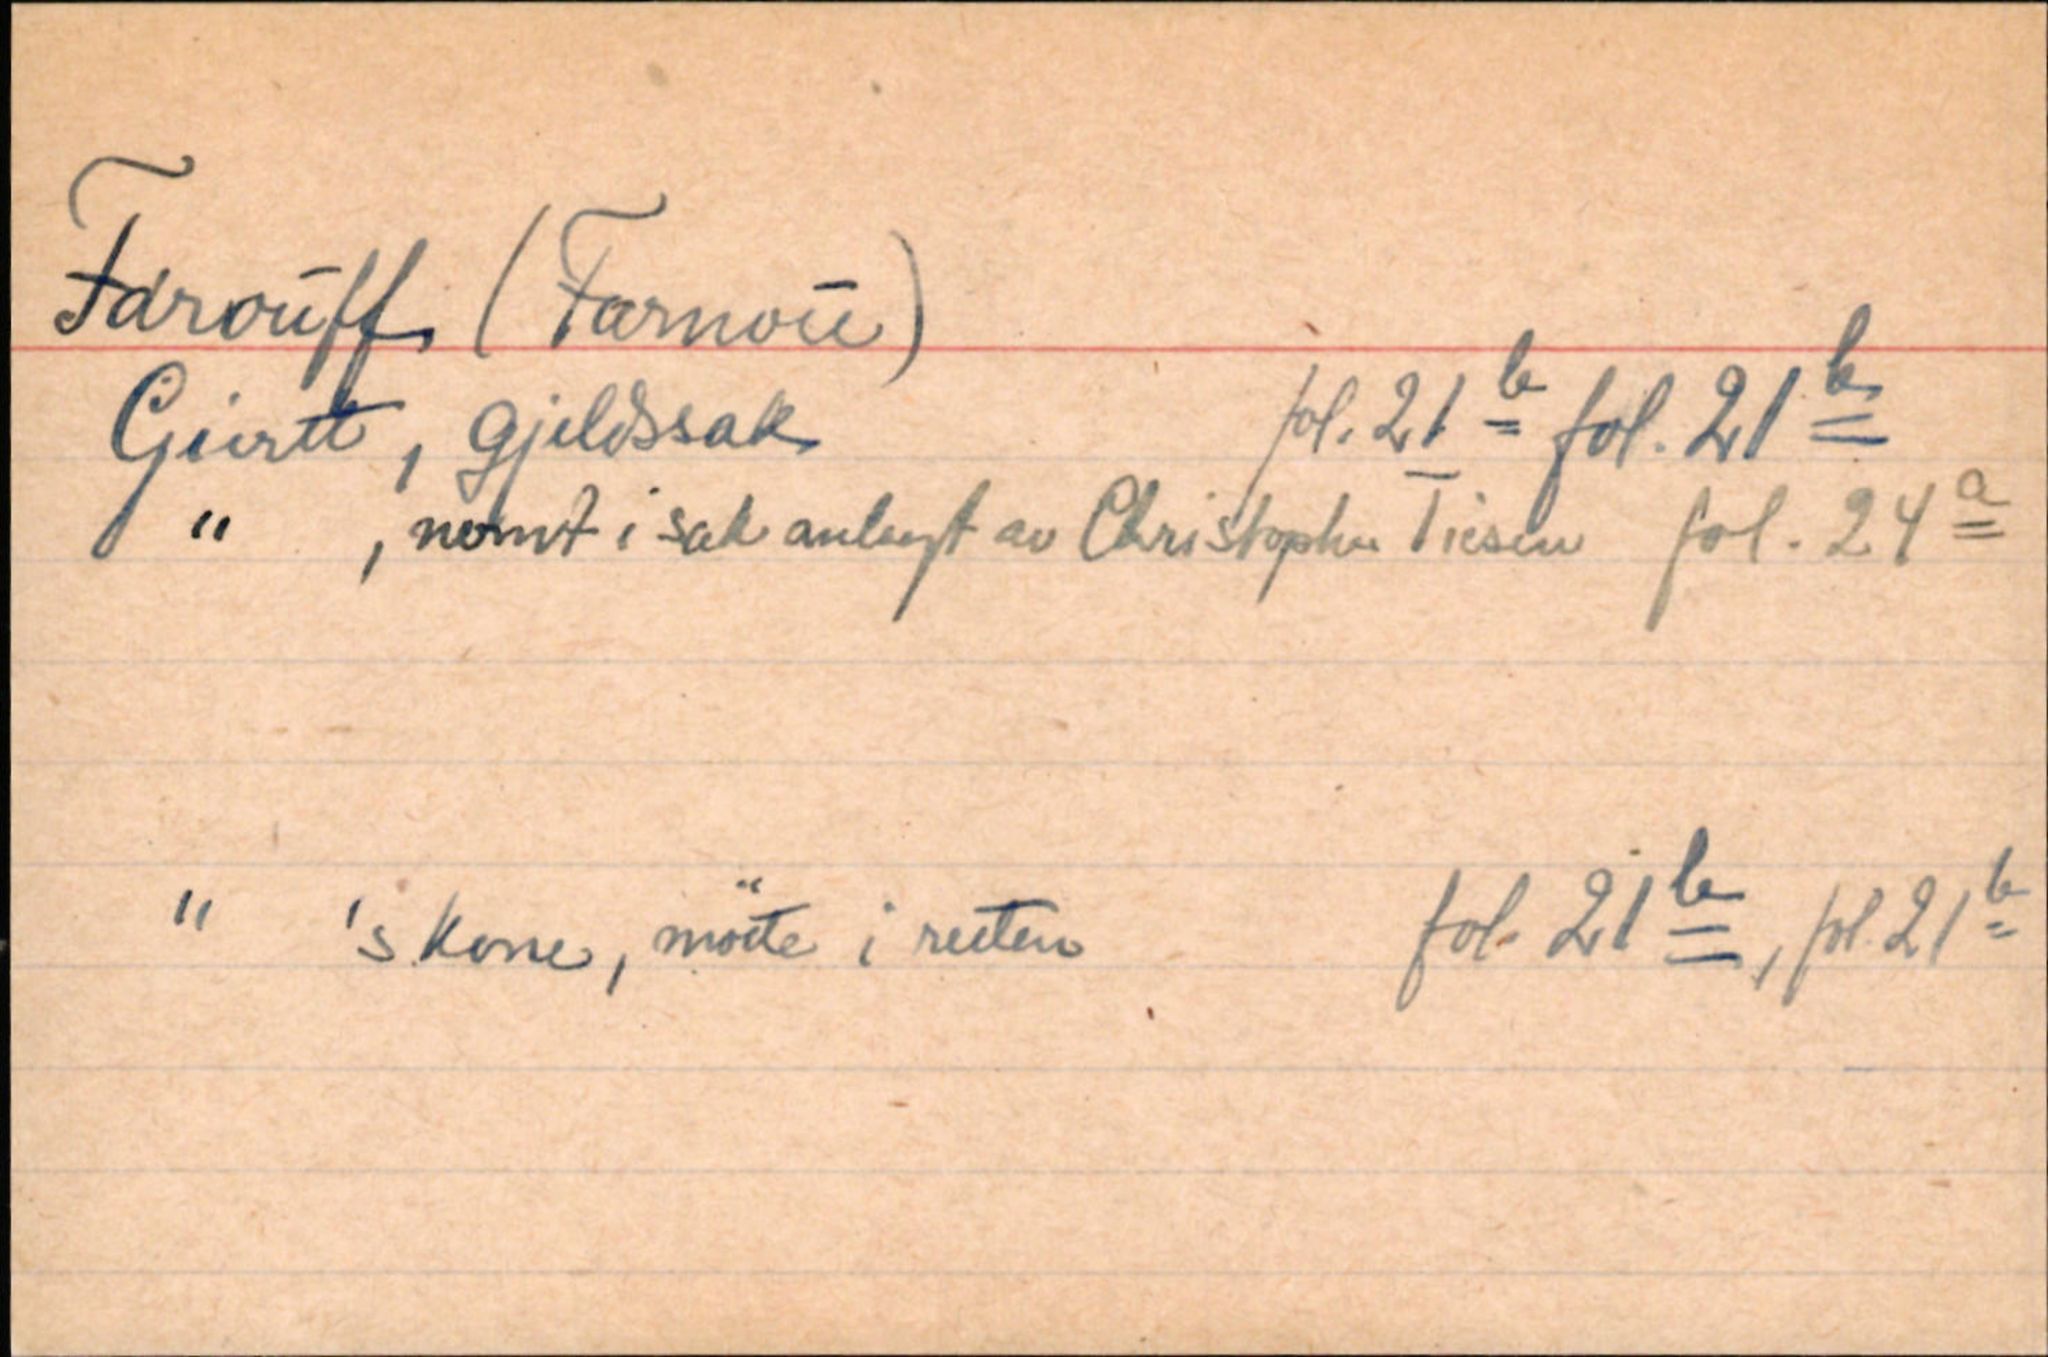 Farouff (Farnou)
Giertt, gjeldssak fol. 21 b fol. 21 b
" , nemnt i sak anlagt av Christopher Tiesen fol. 24 a
" 's kone, mötte i retten fol. 21 b, fol. 21 b